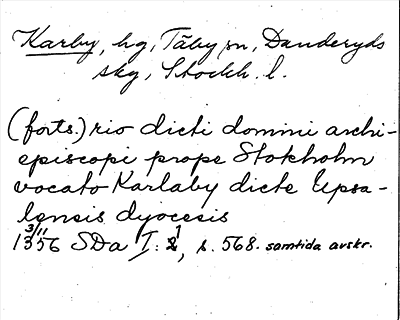 Karby, hg, Täby sn, Danderyds
skg, Stockh. l.
(forts.) rio dicti domini archi-
episcopi prope Stokholm
vocato Karlaby dicte Upsa-
lensis dyocesis
3/11
1356 SDa I: 1, s. 568. samtida avskr.